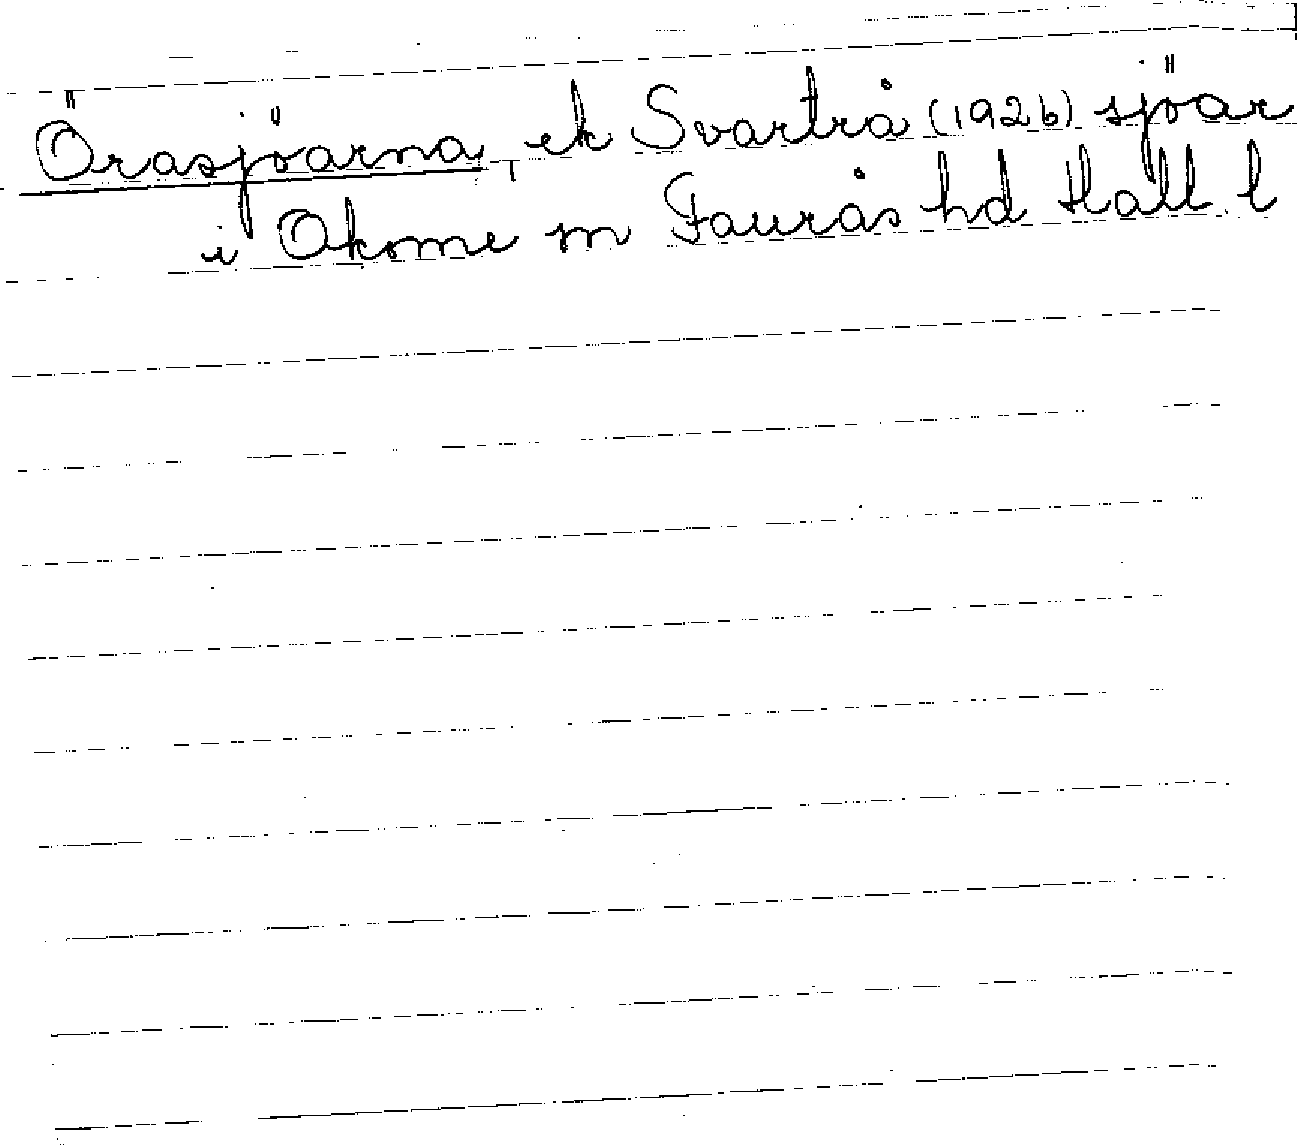 Örasjöarna, ek Svartrå (1926) sjöar
i Okome m Faurås hd Hall l